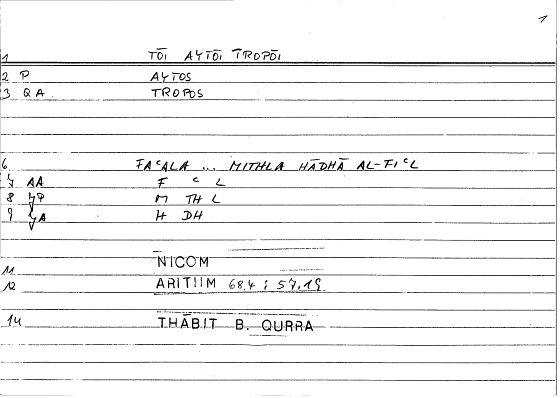 1
1 TŌI AYTŌI TROPŌI
2 P AYTOS
3 QA TROPOS
6 FAᶜALA ... MITHLA HĀDHĀ AL-FIᶜL
7 AA F ᶜ L
8 M TH L
9 H DH
NICOM
11
12 ARITHM 68.4 ; 57.19
14 THĀBIT B. QURRA